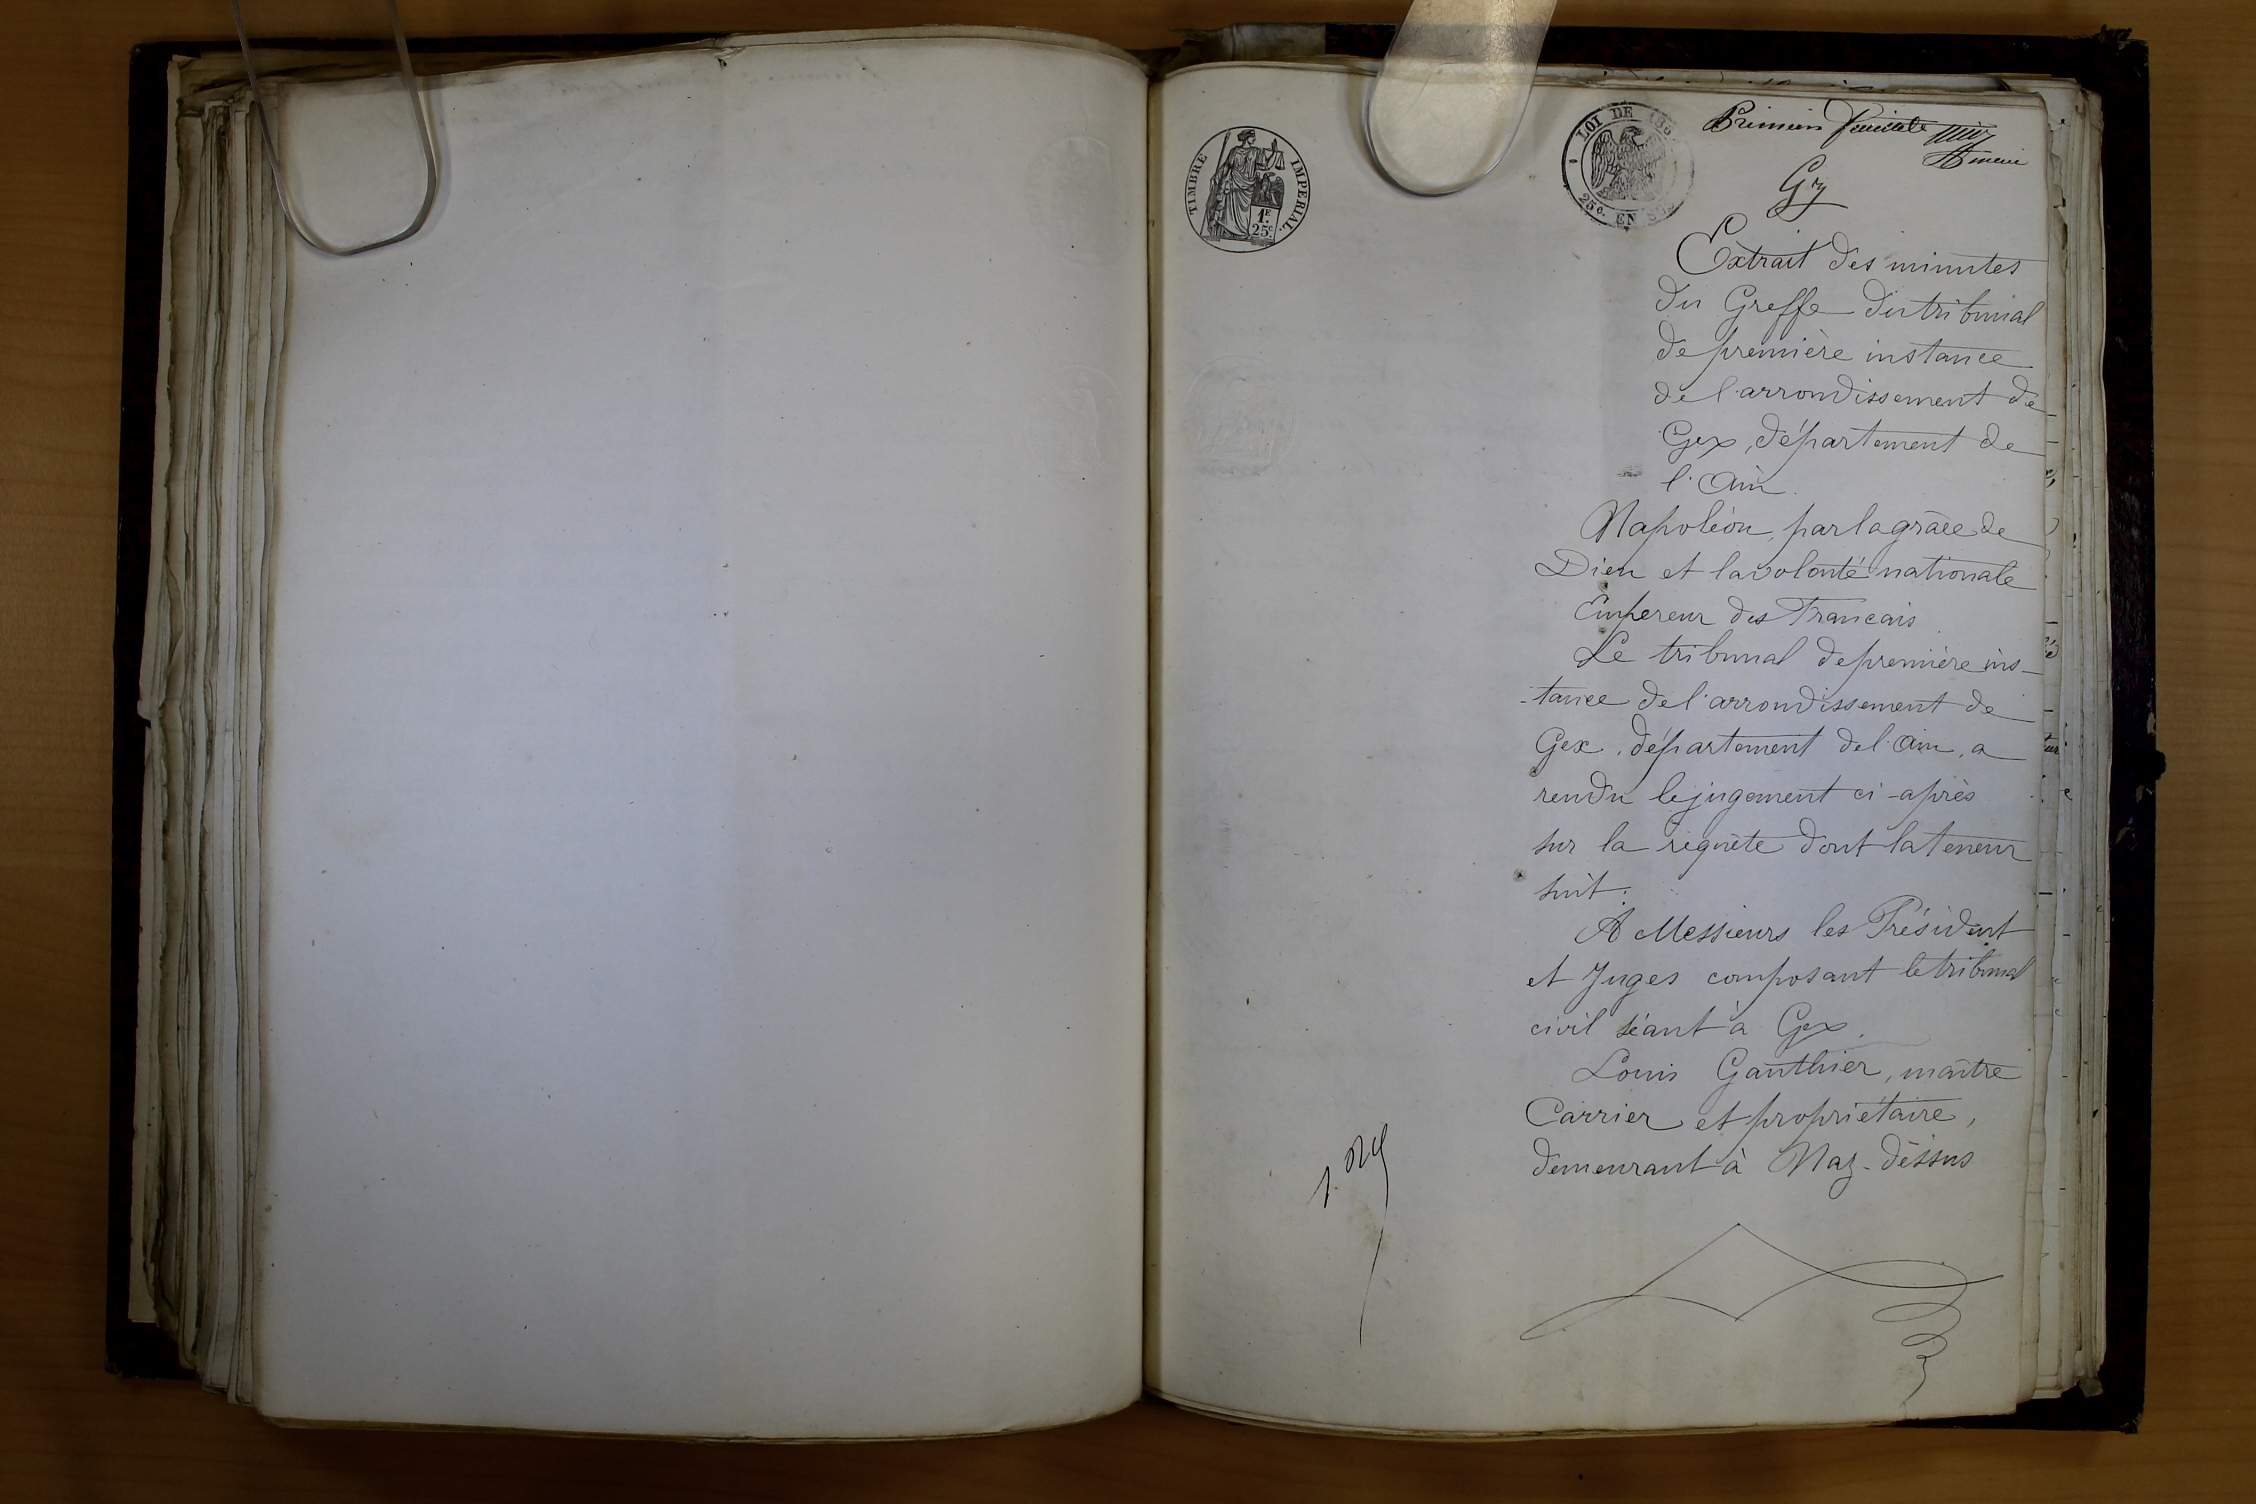 TIMBRE IMPERIAL.
1F.
25c.
LOI DE
25c. EN
Extrait des minutes
du Greffe du tribunal
de première instance
de l'arrondissement de
Gex, département de
l'Ain.
Napoléon, par la grâce de
Dieu et la volonté nationale
Empereur des Francais
Le tribunal de première ins-
-tance de l'arrondissement de
Gex, département de l'Ain, a
rendu le jugement ci-après
sur la requête dont la teneur
suit:
A Messieurs les Président
et Juges composant le tribunal
civil séant à Gex.
Louis Gauthier, maître
Carrier et propriétaire,
demeurant à Naz-dessus